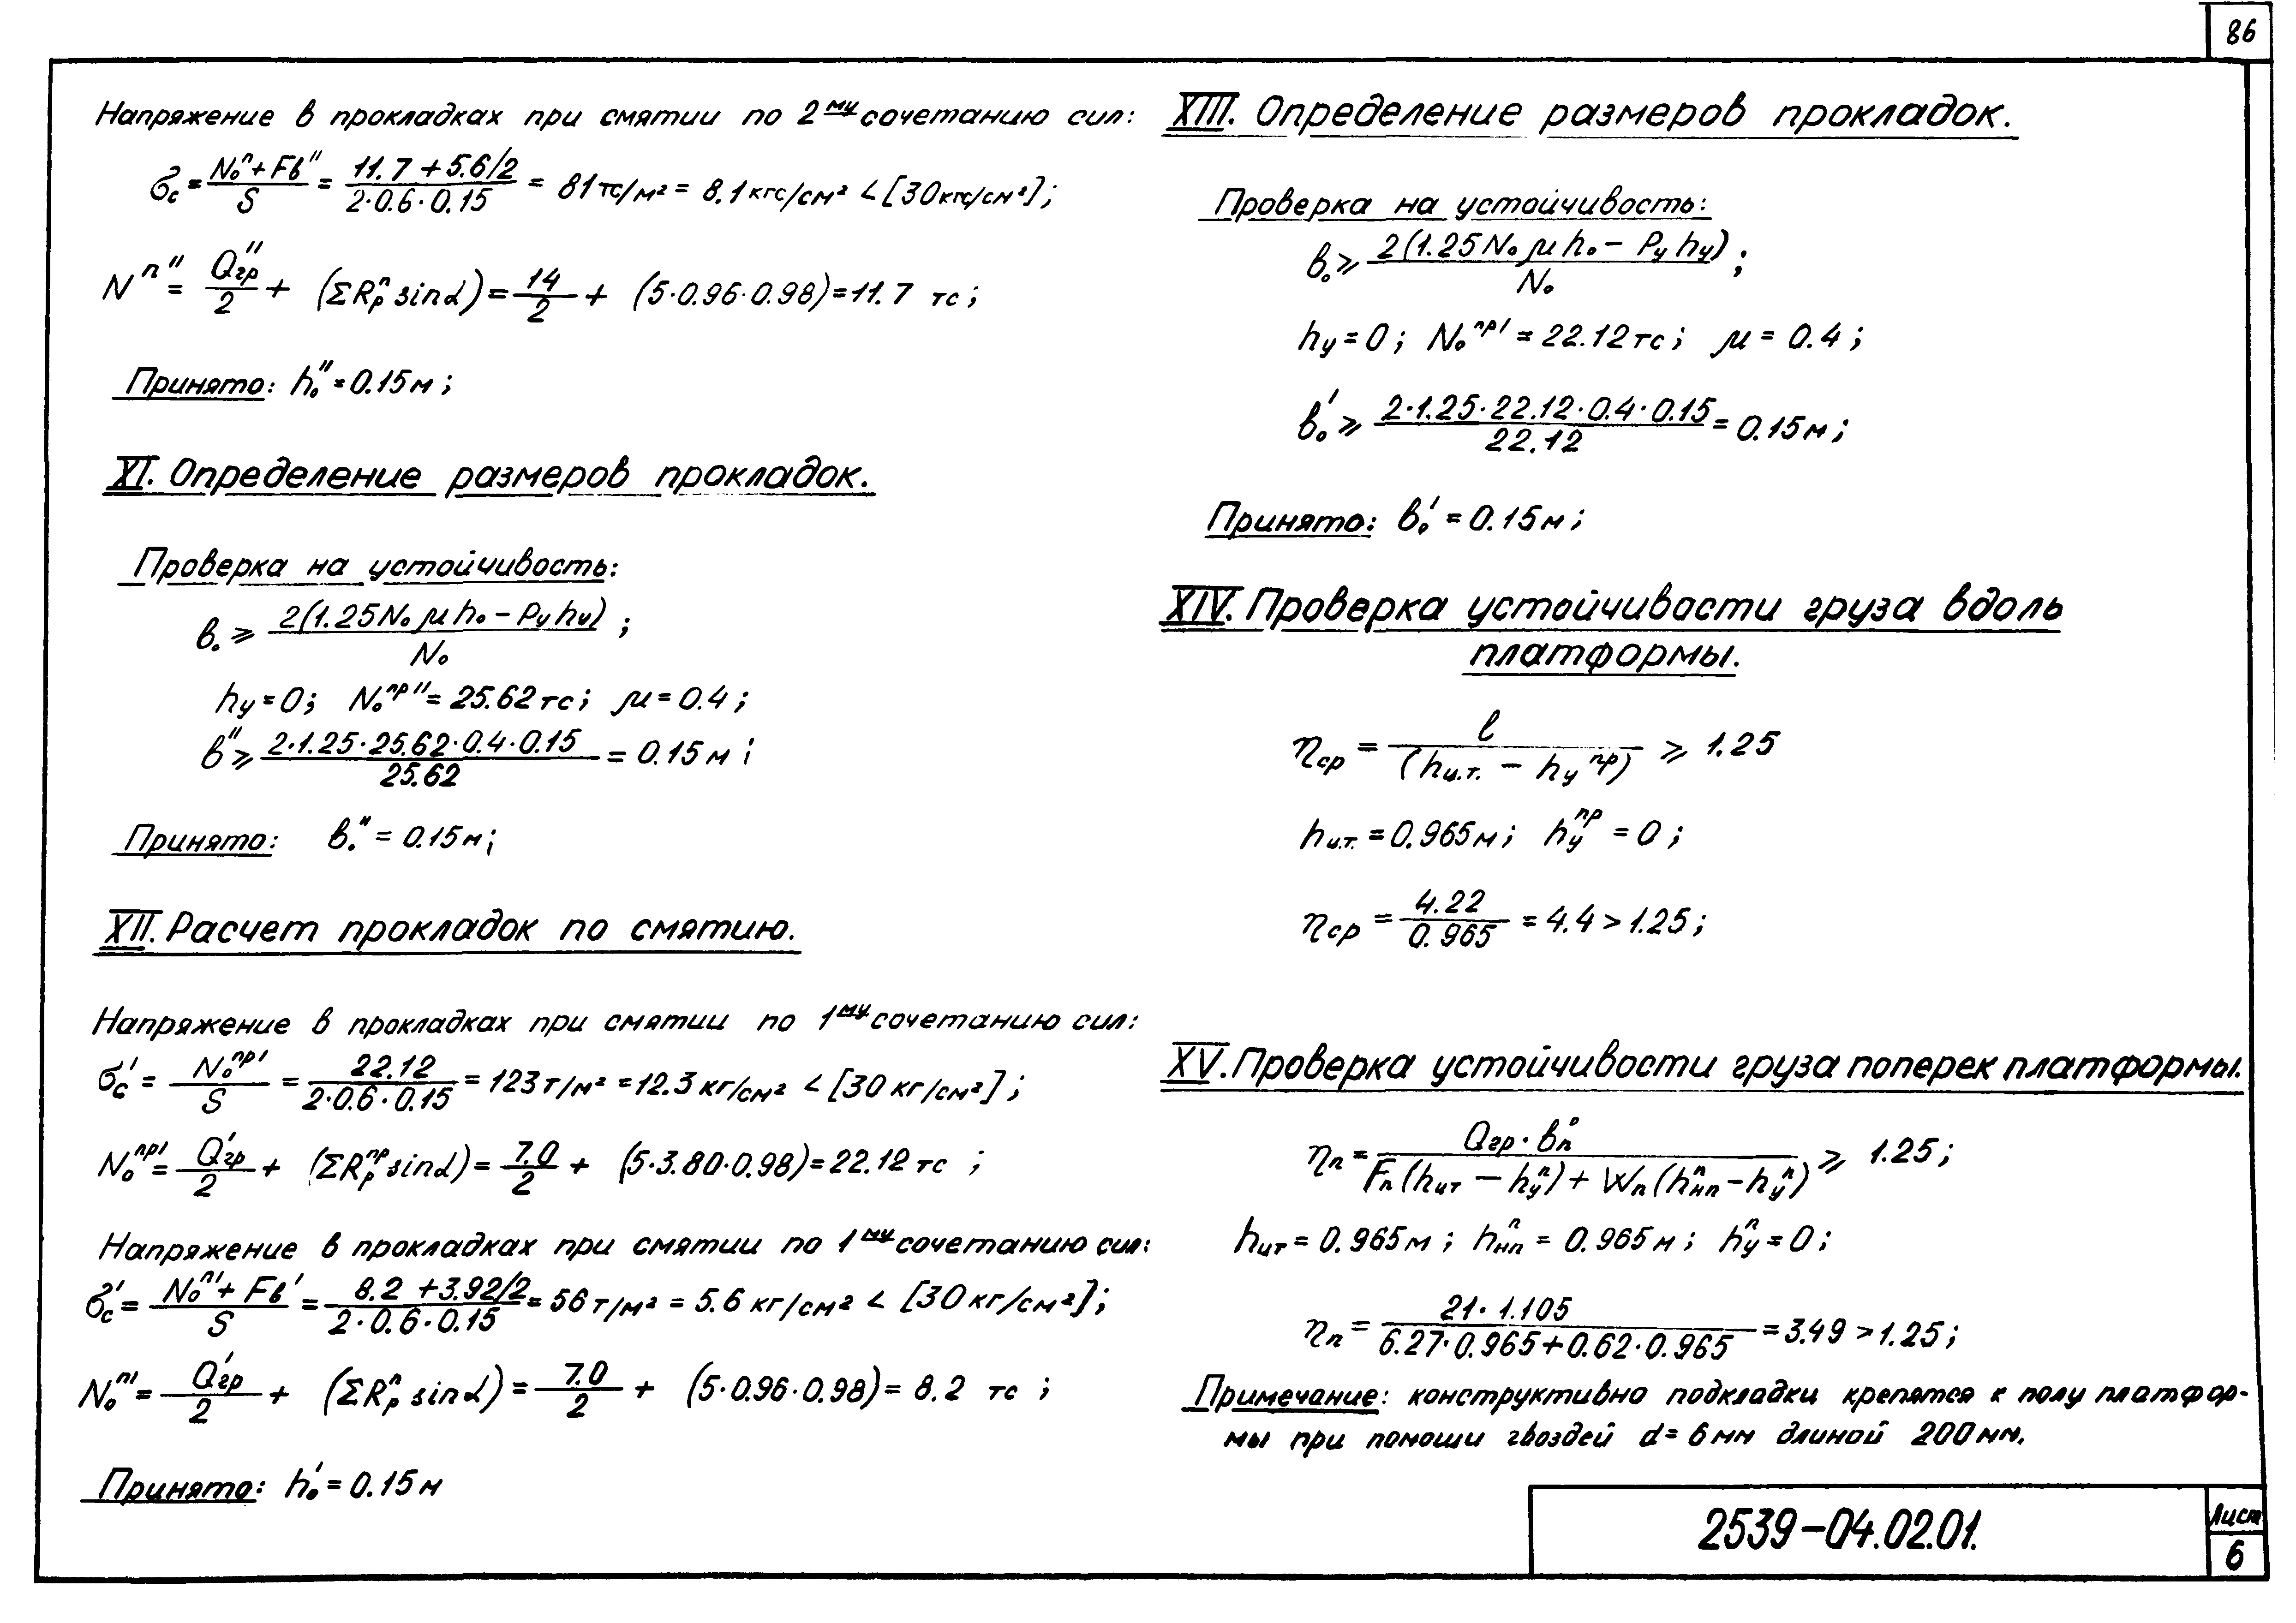 86
Напряжение в прокладках при смятии по 2му сочетанию сил:
σс = (N₀ⁿ + Fв'')/S = (11.7 + 5.6/2)/(2·0.6·0.15) = 81 тс/м² = 8.1 кгс/см² < [30 кгс/см²];
Nⁿ'' = Q''гр/2 + (ΣRрⁿ sinα) = 14/2 + (5·0.96·0.98) = 11.7 тс;
Принято: h₀'' = 0.15 м;
XI. Определение размеров прокладок.
Проверка на устойчивость:
в₀ ⩾ 2(1.25N₀ μ h₀ – Pу hу)/N₀ ;
hу = 0; N₀ᵖʳ'' = 25.62 тс; μ = 0.4;
в'' ⩾ 2·1.25·25.62·0.4·0.15/25.62 = 0.15 м;
Принято: в₀'' = 0.15 м;
XII. Расчет прокладок по смятию.
Напряжение в прокладках при смятии по 1му сочетанию сил:
σс' = N₀пр'/S = 22.12/(2·0.6·0.15) = 123 т/м² = 12.3 кг/см² < [30 кг/см²];
N₀пр' = Q'гр/2 + (ΣRрпр sinα) = 7.0/2 + (5·3.80·0.98) = 22.12 тс ;
Напряжение в прокладках при смятии по 1му сочетанию сил:
σс' = (N₀п' + Fв')/S = (8.2 + 3.92/2)/(2·0.6·0.15) = 56 т/м² = 5.6 кг/см² < [30 кг/см²];
N₀п' = Q'гр/2 + (ΣRрп sinα) = 7.0/2 + (5·0.96·0.98) = 8.2 тс ;
Принято: h₀' = 0.15 м
XIII. Определение размеров прокладок.
Проверка на устойчивость:
в₀ ⩾ 2(1.25N₀ μ h₀ – Pу hу)/N₀ ;
hу = 0; N₀пр' = 22.12 тс; μ = 0.4;
в₀' ⩾ 2·1.25·22.12·0.4·0.15/22.12 = 0.15 м;
Принято: в₀' = 0.15 м;
XIV. Проверка устойчивости груза вдоль
платформы.
ηср = l/(hц.т. – hупр) ⩾ 1.25
hц.т. = 0.965 м; hупр = 0;
ηср = 4.22/0.965 = 4.4 > 1.25;
XV. Проверка устойчивости груза поперек платформы.
ηп = Qгр·вп⁰/(Fп(hцт – hуп) + Wп(hнпп – hуп)) ⩾ 1.25;
hцт = 0.965 м; hнпп = 0.965 м; hуп = 0;
ηп = 21·1.105/(6.27·0.965+0.62·0.965) = 3.49 > 1.25;
Примечание: конструктивно подкладки крепятся к полу платфор-
мы при помощи гвоздей d = 6 мм длиной 200 мм.
2539-04.02.01.
Лист
6